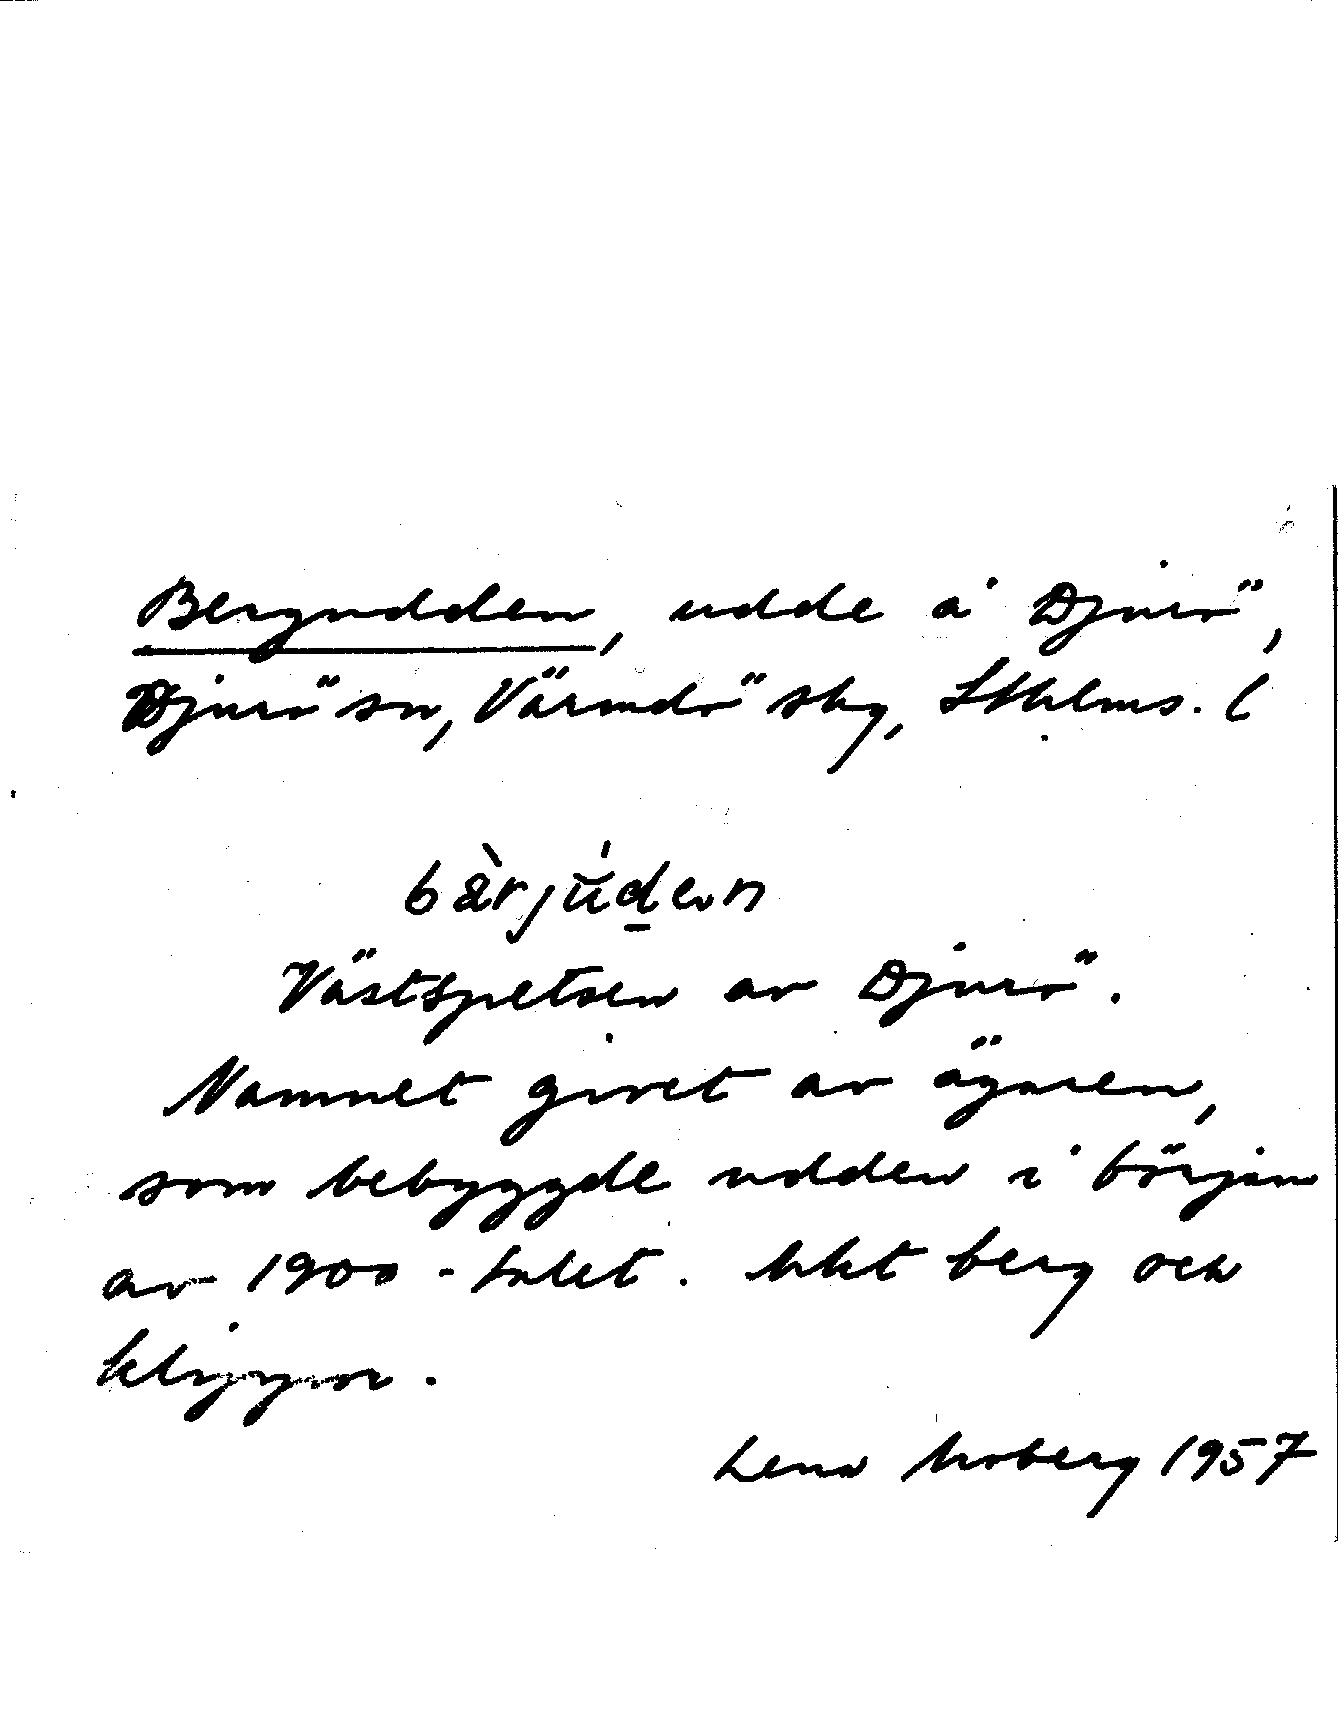 Bergudden, udde å Djurö,
Djurö sn, Värmdö skg, Sthlms. l
bärjúden
Västspetsen av Djurö.
Namnet givet av ägaren,
som bebyggde udden i början
av 1900-talet. Mkt berg och
klippor.
Lena Moberg 1957